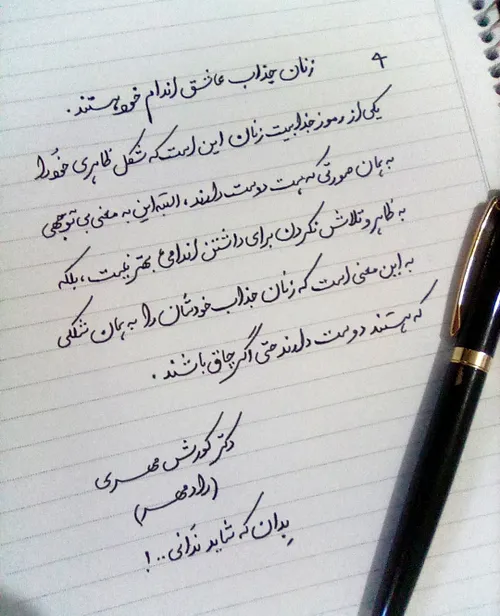 ۴ زنان جذاب عاشق اندام خود هستند.
یکی از رموز جذابیت زنان این است که شکل ظاهری خود را
به همان صورتی که هست دوست دارند، البته این به معنی بی توجهی
به ظاهر و تلاش نکردن برای داشتن اندامی بهتر نیست، بلکه
به این معنی است که زنان جذاب خودشان را به همان شکلی
که هستند دوست دارند حتی اگر چاق باشند.
دکتر کورش مهری
(رادمهر)
بِدان که شاید نَدانی..!